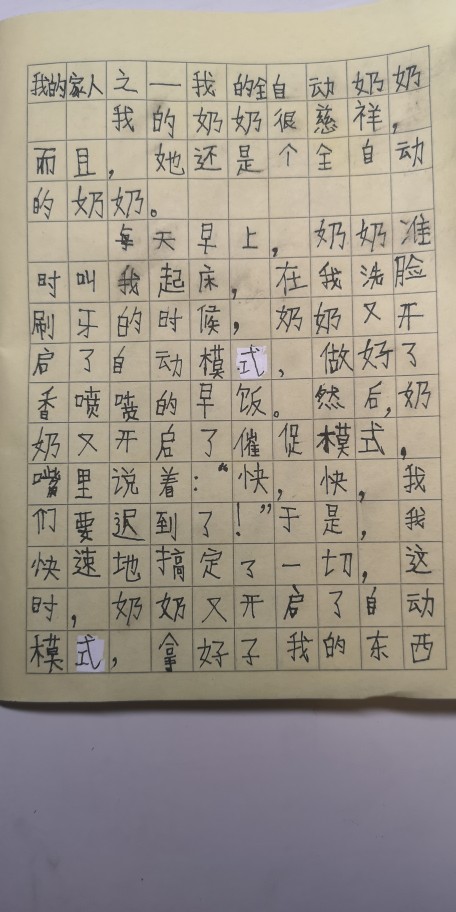 我的家人之一我的全自动奶奶
我的奶奶很慈祥，
而且，她还是个全自动
的奶奶。
每天早上，奶奶准
时叫我起床，在我洗脸
刷牙的时候，奶奶又开
启了自动模式，做好了
香喷喷的早饭。然后，奶
奶又开启了催促模式，
嘴里说着：“快，快，我
们要迟到了！”于是，我
快速地搞定了一切，这
时，奶奶又开启了自动
模式，拿好子我的东西